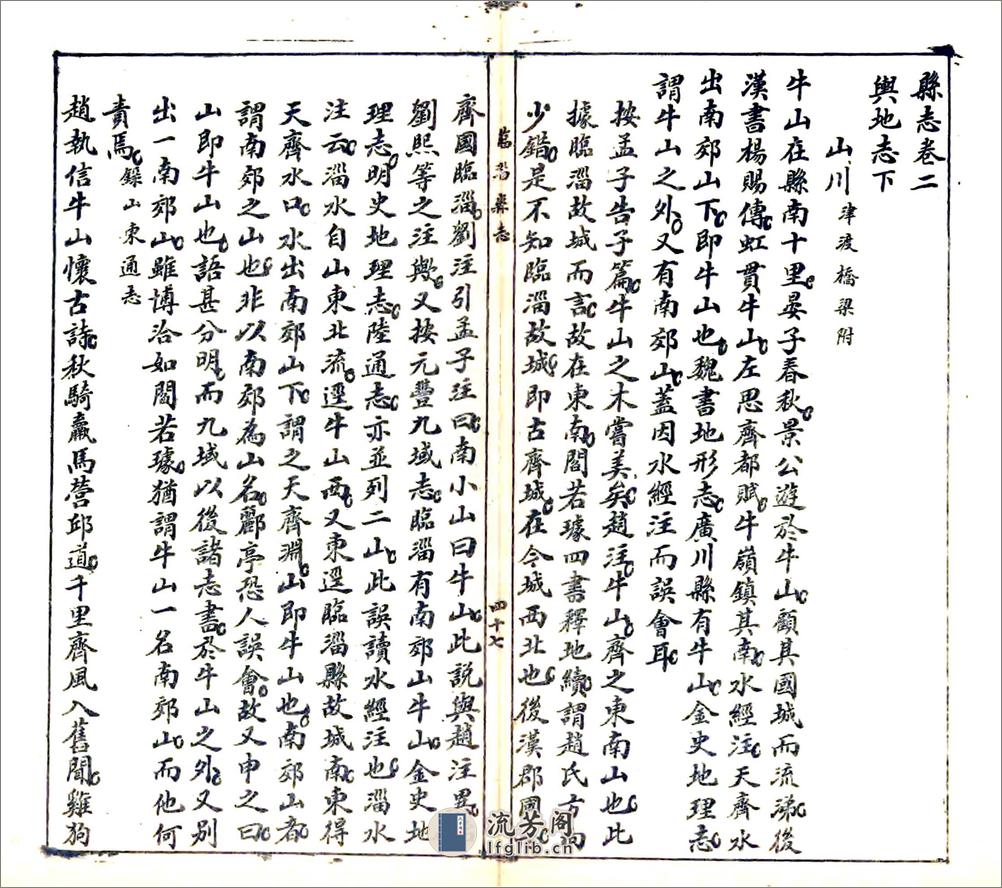 縣志卷二
輿地志下
山川 津渡橋梁附
牛山在縣南十里晏子春秋景公遊於牛山顧其國城而流涕後
漢書楊賜傳虹貫牛山左思齊都賦牛嶺鎮其南水經注天齊水
出南郊山下即牛山也魏書地形志廣川縣有牛山金史地理志
謂牛山之外又有南郊山蓋因水經注而誤會耳
按孟子告子篇牛山之木嘗美矣趙注牛山齊之東南山也此
據臨淄故城而言故在東南閻若璩四書釋地續謂趙氏方向
少錯是不知臨淄故城即古齊城在今城西北也後漢郡國
臨淄縣志
四十七
齊國臨淄劉注引孟子注曰南小山曰牛山此說與趙注異
劉熙等之注歟又按元豐九域志臨淄有南郊山牛山金史地
理志明史地理志陸通志亦並列二山此誤讀水經注也淄水
注云淄水自山東北流逕牛山西又東逕臨淄縣故城南東得
天齊水口水出南郊山下謂之天齊淵山即牛山也南郊山者
謂南郊之山也非以南郊為山名酈亭恐人誤會故又申之曰
山即牛山也語甚分明而九域以後諸志書於牛山之外又別
出一南郊山雖博洽如閻若璩猶謂牛山一名南郊山而他何
責焉 錄山東通志
趙執信牛山懷古詩秋騎羸馬營邱道千里齊風入舊聞雞狗
流芳阁
lfglib.cn